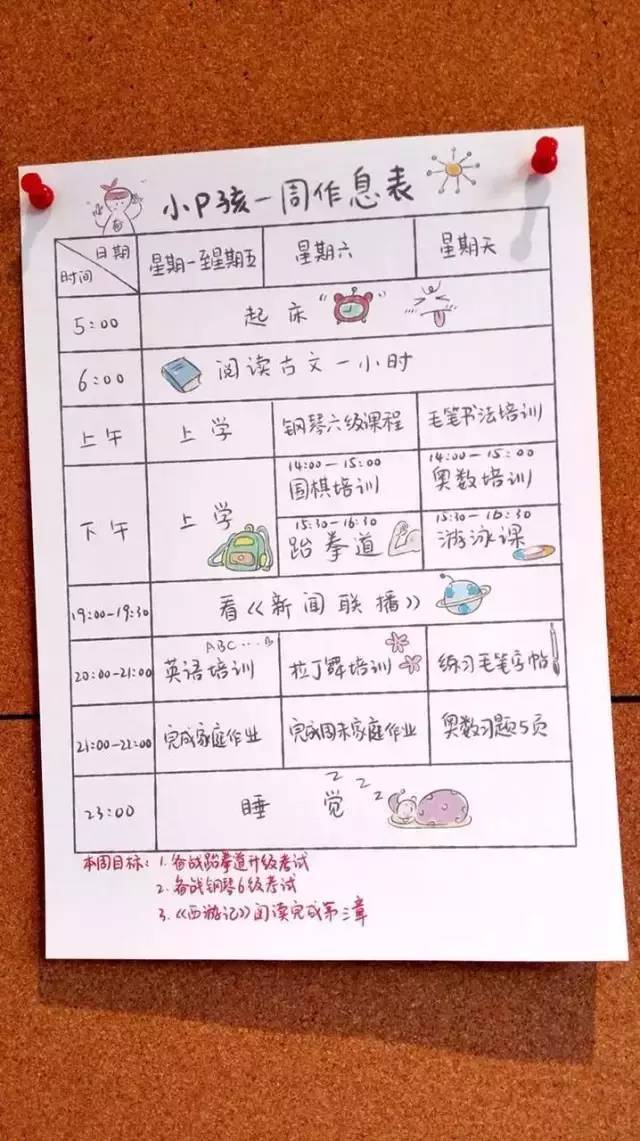 小P孩一周作息表
日期
时间
星期一至星期五
星期六
星期天
5:00
起床
6:00
阅读古文一小时
上午
上学
钢琴六级课程
毛笔书法培训
下午
上学
14:00-15:00
围棋培训
14:00-15:00
奥数培训
15:30-16:30
跆拳道
15:30-16:30
游泳课
19:00-19:30
看《新闻联播》
20:00-21:00
ABC...B
英语培训
拉丁舞培训
练习毛笔字帖
21:00-22:00
完成家庭作业
完成周末家庭作业
奥数习题5页
23:00
睡觉
z z z
本周目标：1.备战跆拳道升级考试
2.备战钢琴6级考试
3.《西游记》阅读完成第三章